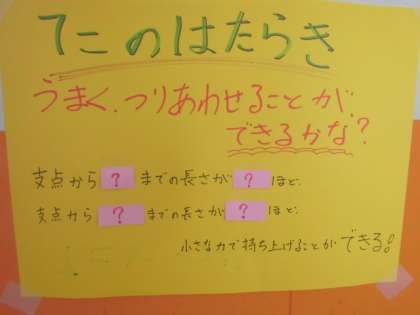 てこのはたらき
うまく、つりあわせることが、
できるかな?
支点から ? までの長さが ? ほど、
支点から ? までの長さが ? ほど、
小さな力で持ち上げることができる。